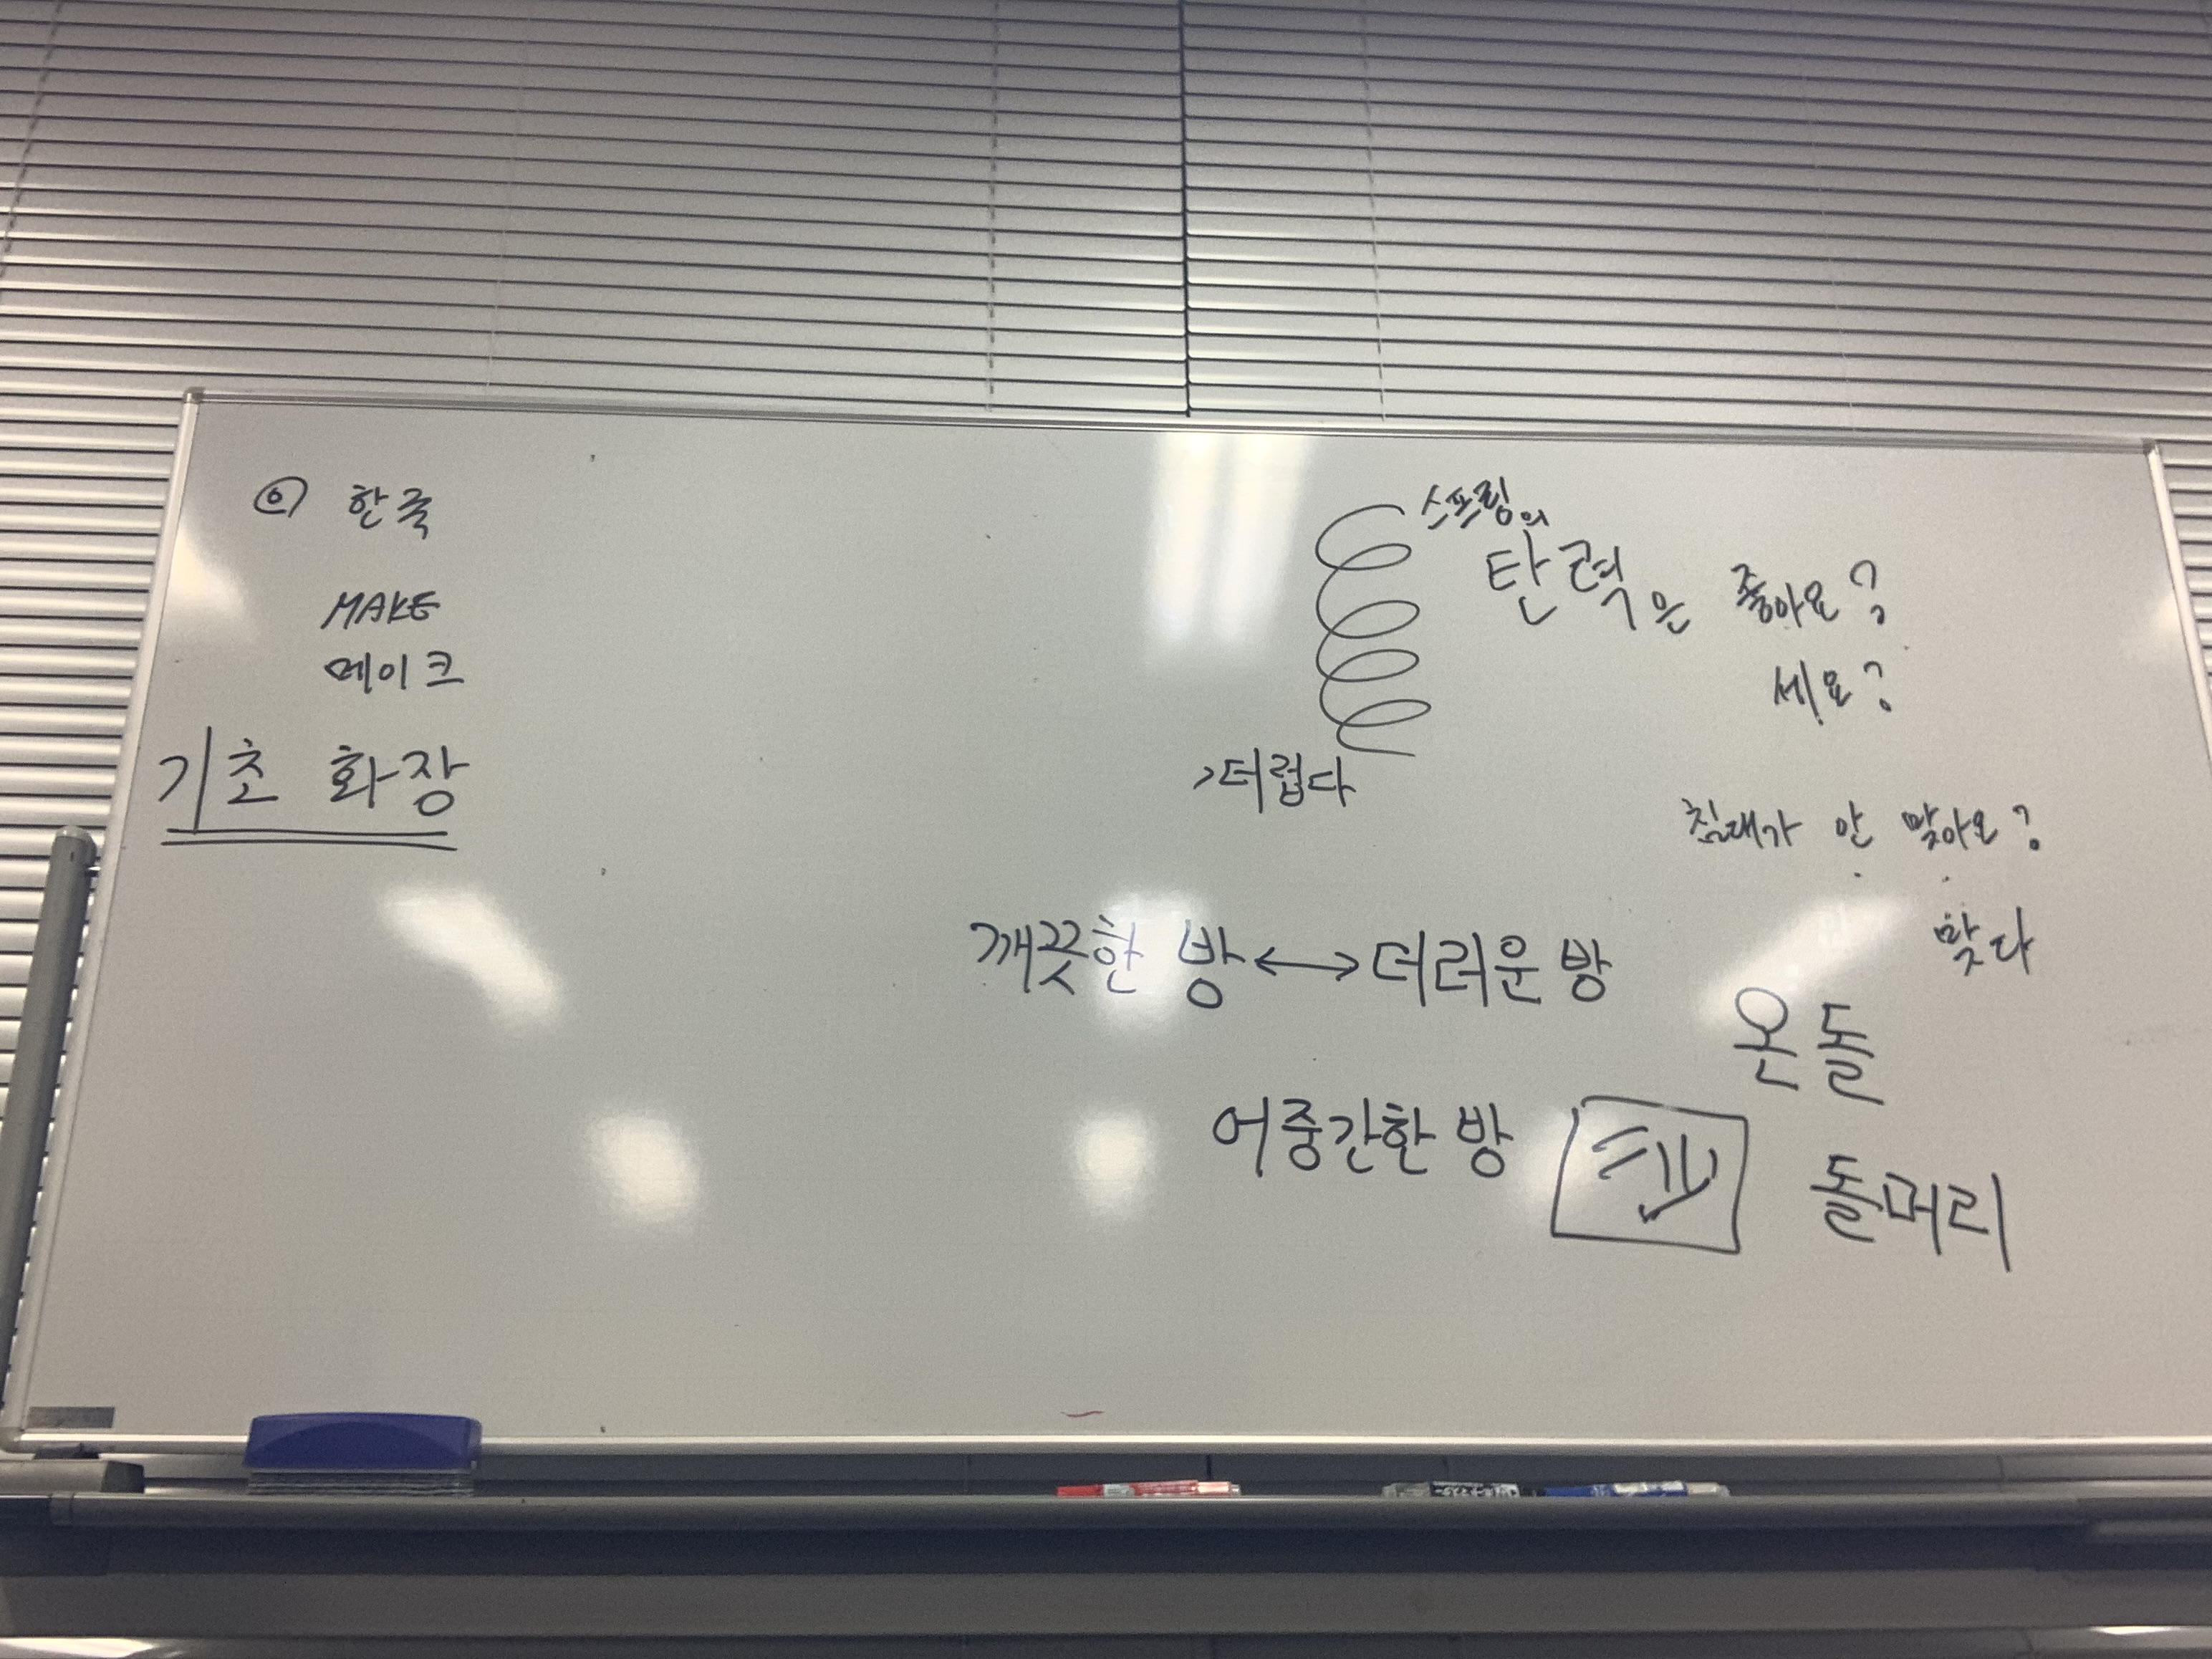 한국
MAKE
메이크
기초 화장
스프링의
탄력은 좋아요?
세요?
더럽다
침대가 안 맞아요?
맞다
깨끗한 방 ↔ 더러운 방
온돌
어중간한 방
돌머리